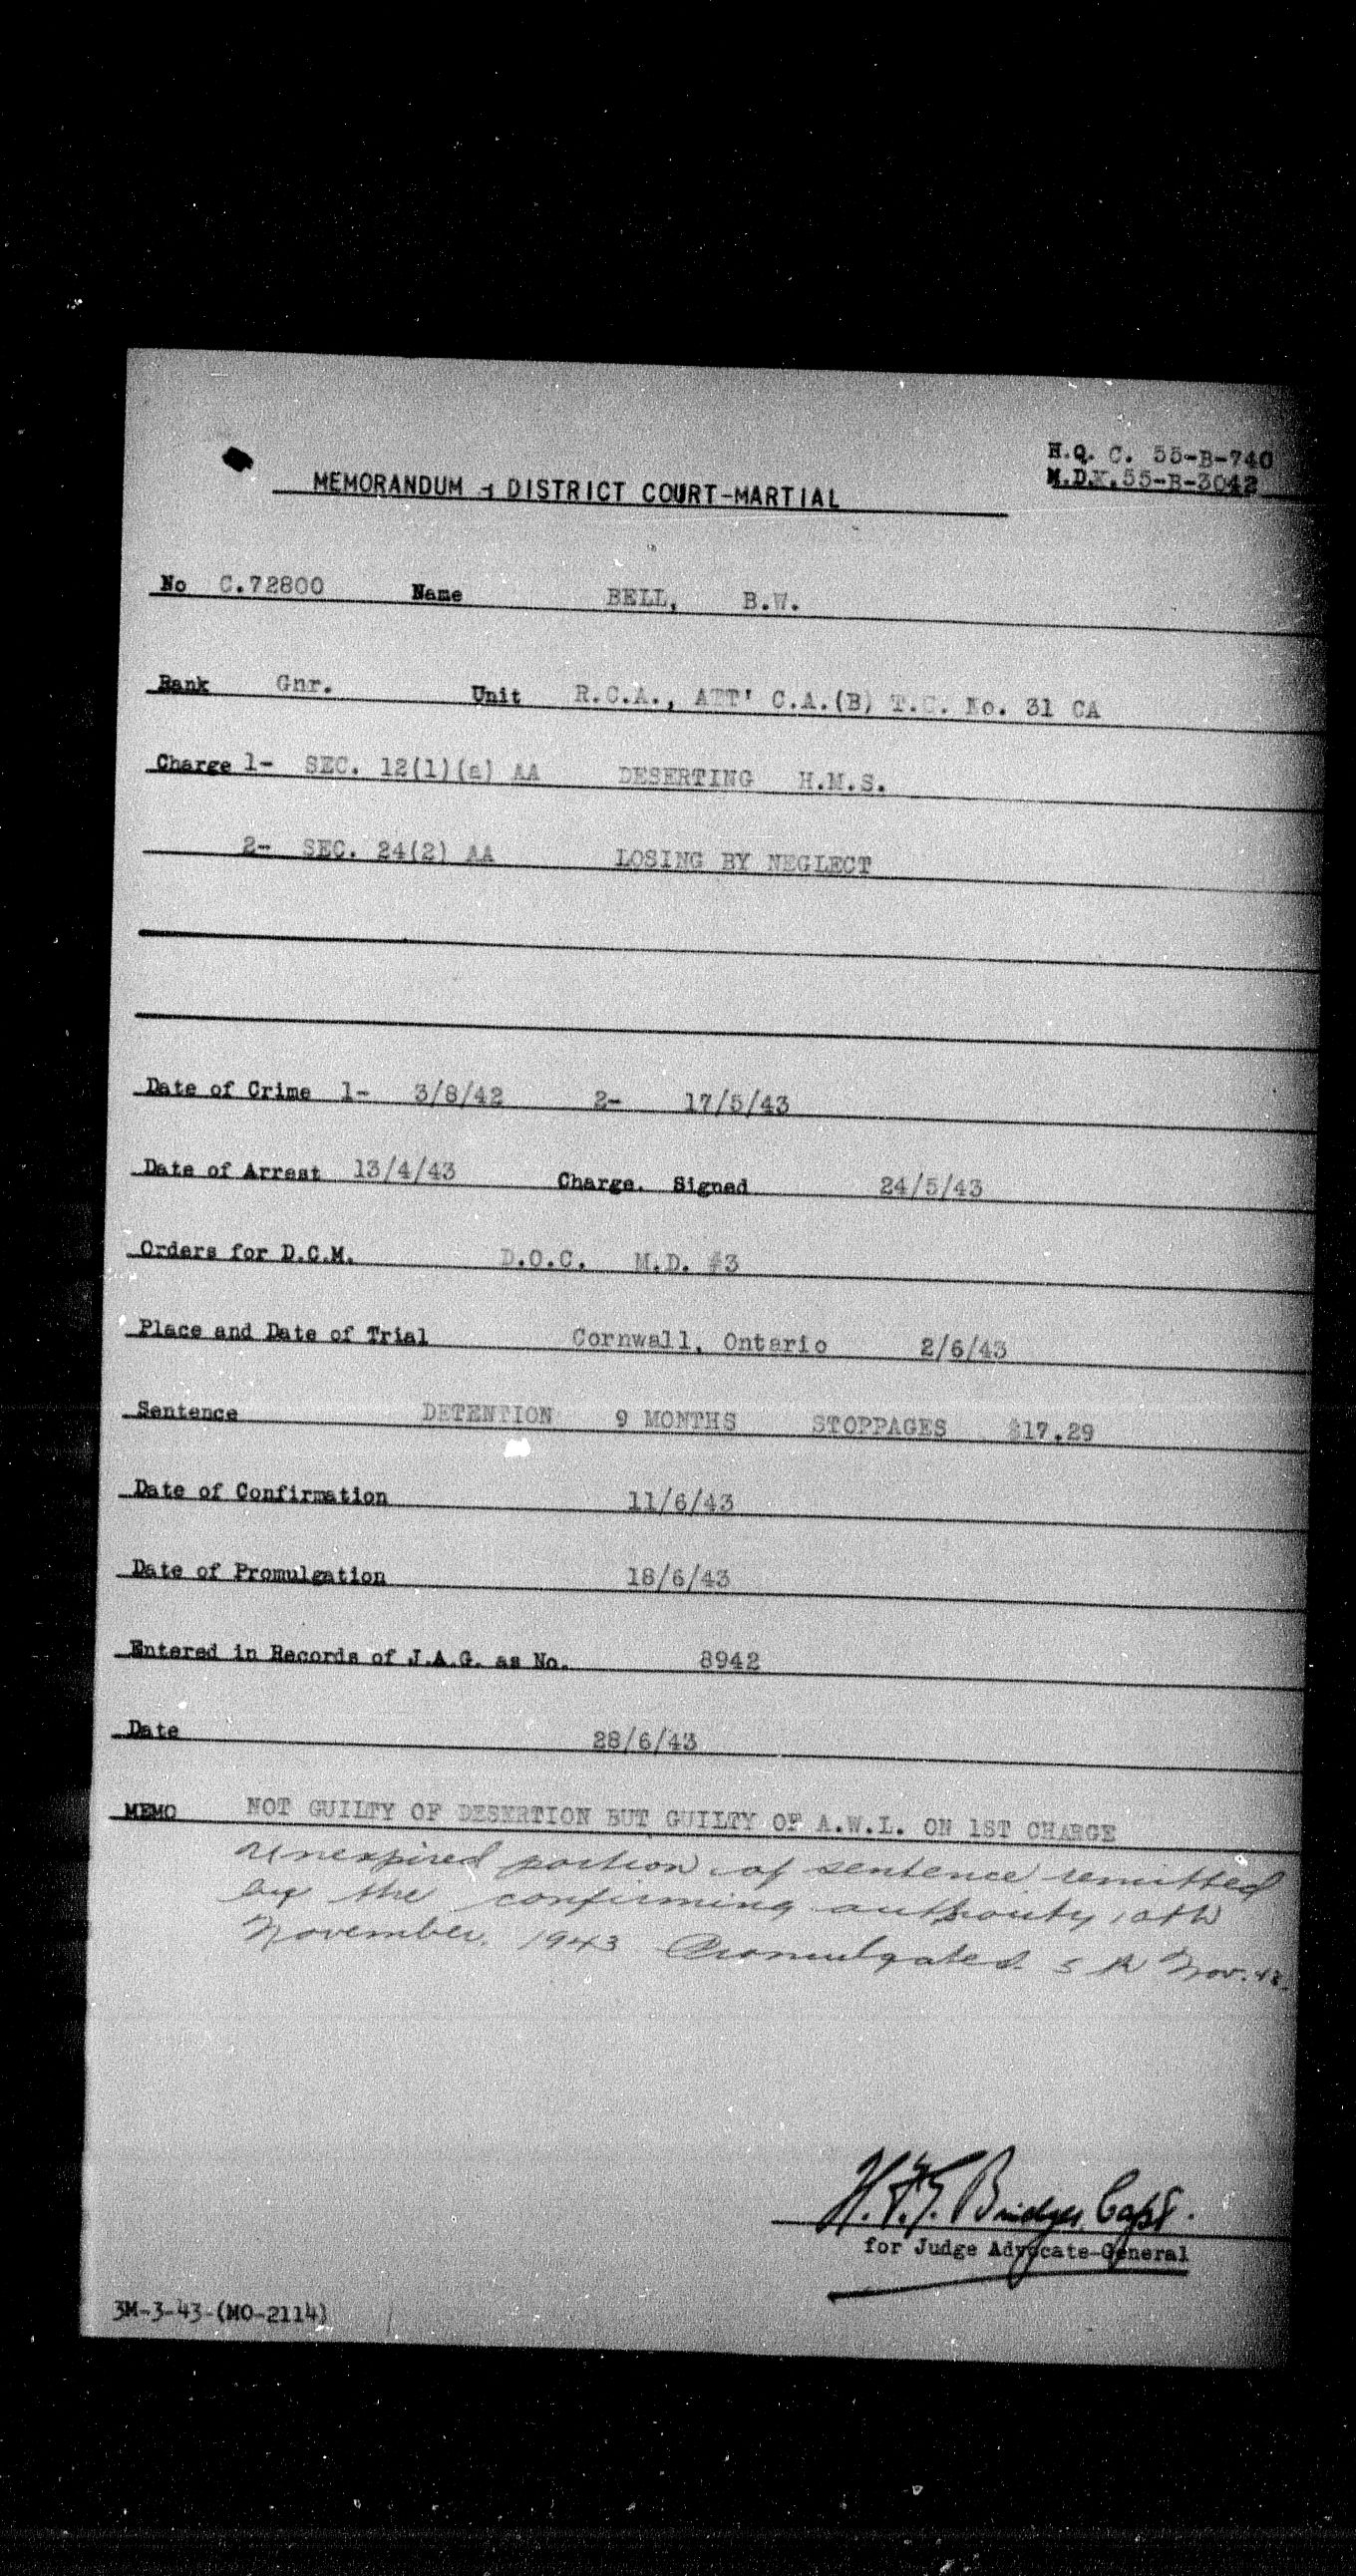 H.Q. C. 55-B-740
M.D.K. 55-B-3042
MEMORANDUM - DISTRICT COURT-MARTIAL
No C.72800 Name BELL, B.W.
Rank Gnr. Unit R.C.A., ATT' C.A.(B) T.C. No. 31 CA
Charge 1- SEC. 12(1)(a) AA DESERTING H.M.S.
2- SEC. 24(2) AA LOSING BY NEGLECT
Date of Crime 1- 3/8/42 2- 17/5/43
Date of Arrest 13/4/43 Charge. Signed 24/5/43
Orders for D.C.M. D.O.C. M.D. #3
Place and Date of Trial Cornwall, Ontario 2/6/43
Sentence DETENTION 9 MONTHS STOPPAGES $17.29
Date of Confirmation 11/6/43
Date of Promulgation 18/6/43
Entered in Records of J.A.G. as No. 8942
Date 28/6/43
MEMO NOT GUILTY OF DESERTION BUT GUILTY OF A.W.L. ON 1ST CHARGE
Unexpired portion of sentence remitted
by the confirming authority
November, 1943 Promulgated 5th Nov. 43.
H.F.G. Bridges Capt.
for Judge Advocate-General
3M-3-43-(MO-2114)